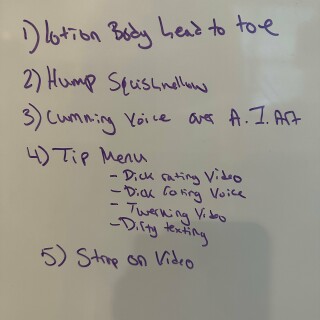 1) Lotion Body head to toe
2) Hump Squishmellow
3) Cumming Voice over A.I. Art
4) Tip Menu
- Dick rating Video
- Dick rating Voice
- Twerking Video
- Dirty texting
5) Strip on Video